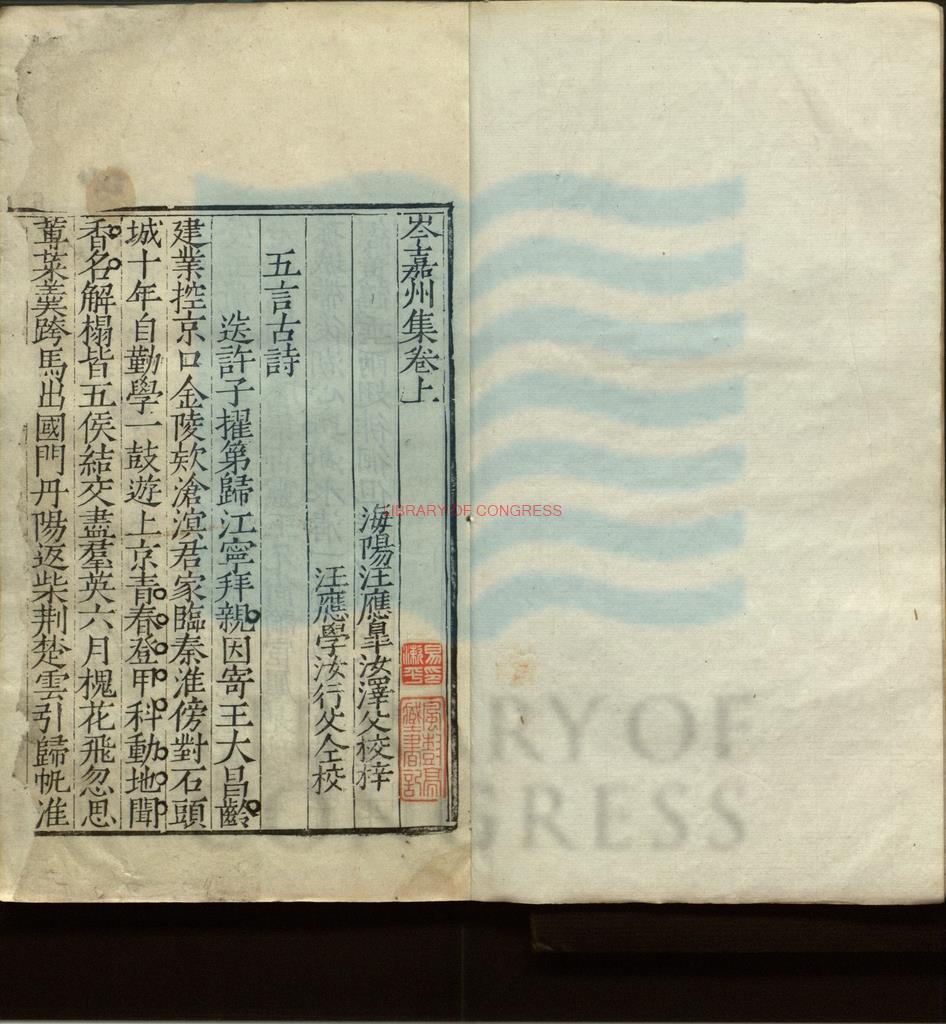 岑嘉州集卷上
海陽汪應臯汝澤父校梓
汪應學汝行父仝校
五言古詩
送許子擢第歸江寧拜親因寄王大昌齡
建業控京口金陵欵滄溟君家臨秦淮傍對石頭
城十年自勤學一鼓遊上京青春登甲科動地聞
香名解榻皆五侯結交盡羣英六月槐花飛忽思
蓴菜羹跨馬出國門丹陽返柴荆楚雲引歸帆淮
風樹亭藏書記
LIBRARY OF CONGRESS
LIBRARY OF CONGRESS